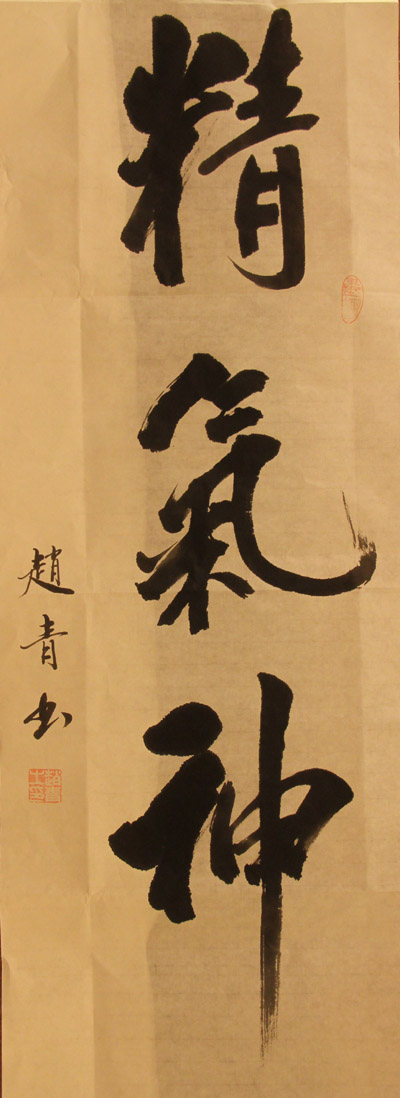 精氣神
趙青书